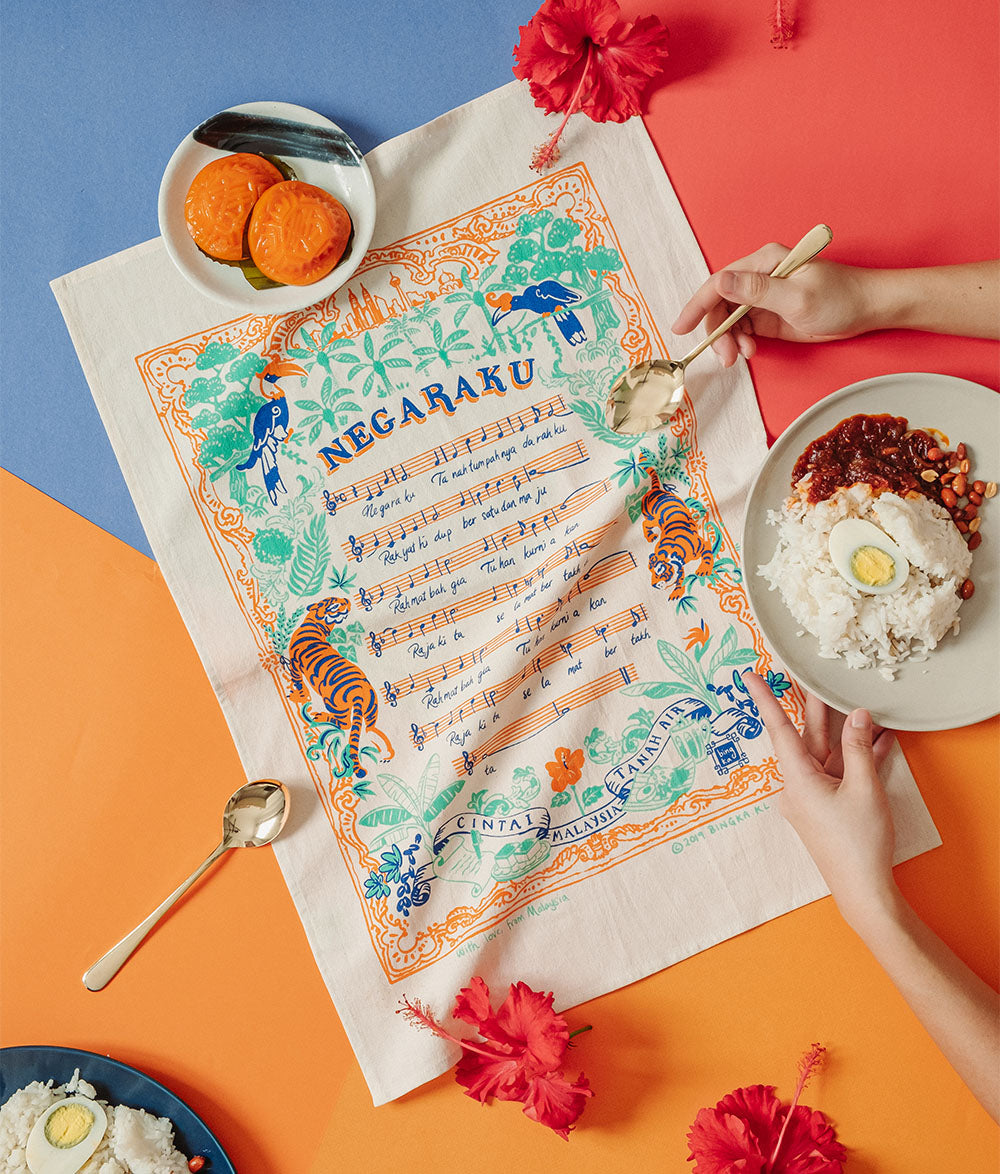 NEGARAKU
Negaraku Tanah tumpahnya darahku
Rakyat hidup bersatu dan maju
Rahmat bahgia Tuhan kurniakan
Raja kita selamat bertakh
Rahmat bahgia Tuhan kurniakan
Raja kita selamat bertakh
ta
CINTAI MALAYSIA TANAH AIR
bing
ka
© 2019 BINGKA KL
with love, from Malaysia